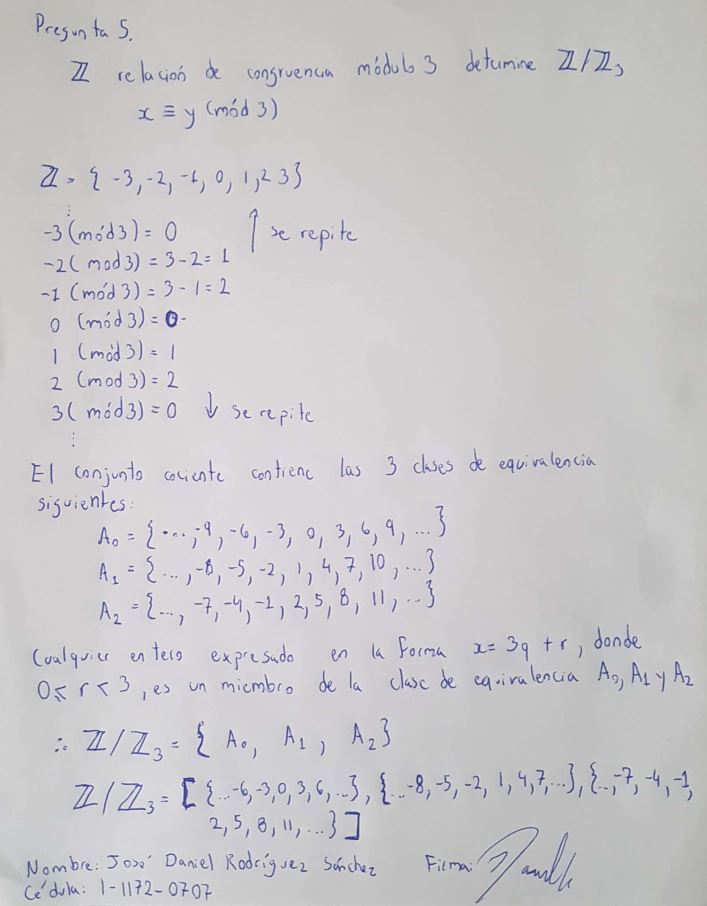 Pregunta 5.
ℤ relación de congruencia módulo 3 determine ℤ/ℤ₃
x ≡ y (mód 3)
ℤ = { -3, -2, -1, 0, 1, 2 3}
⋮
-3 (mód 3) = 0 ↑ se repite
-2 ( mod 3) = 3 - 2 = 1
-1 (mód 3) = 3 - 1 = 2
0 (mód 3) = 0
1 (mód 3) = 1
2 (mod 3) = 2
3 ( mód 3) = 0 ↓ se repite
⋮
El conjunto cociente contiene las 3 clases de equivalencia
siguientes:
A₀ = {..., -9, -6, -3, 0, 3, 6, 9, ...}
A₁ = {..., -8, -5, -2, 1, 4, 7, 10, ...}
A₂ = {..., -7, -4, -1, 2, 5, 8, 11, ...}
Cualquier entero expresado en la forma x = 3q + r, donde
0 ≤ r < 3, es un miembro de la clase de equivalencia A₀, A₁ y A₂
∴ ℤ/ℤ₃ = { A₀, A₁, A₂}
ℤ/ℤ₃ = [ {...-6, -3, 0, 3, 6, ...}, {...-8, -5, -2, 1, 4, 7, ...}, {..., -7, -4, -1,
2, 5, 8, 11, ...} ]
Nombre: José Daniel Rodríguez Sánchez Firma:
Cédula: 1-1172-0707